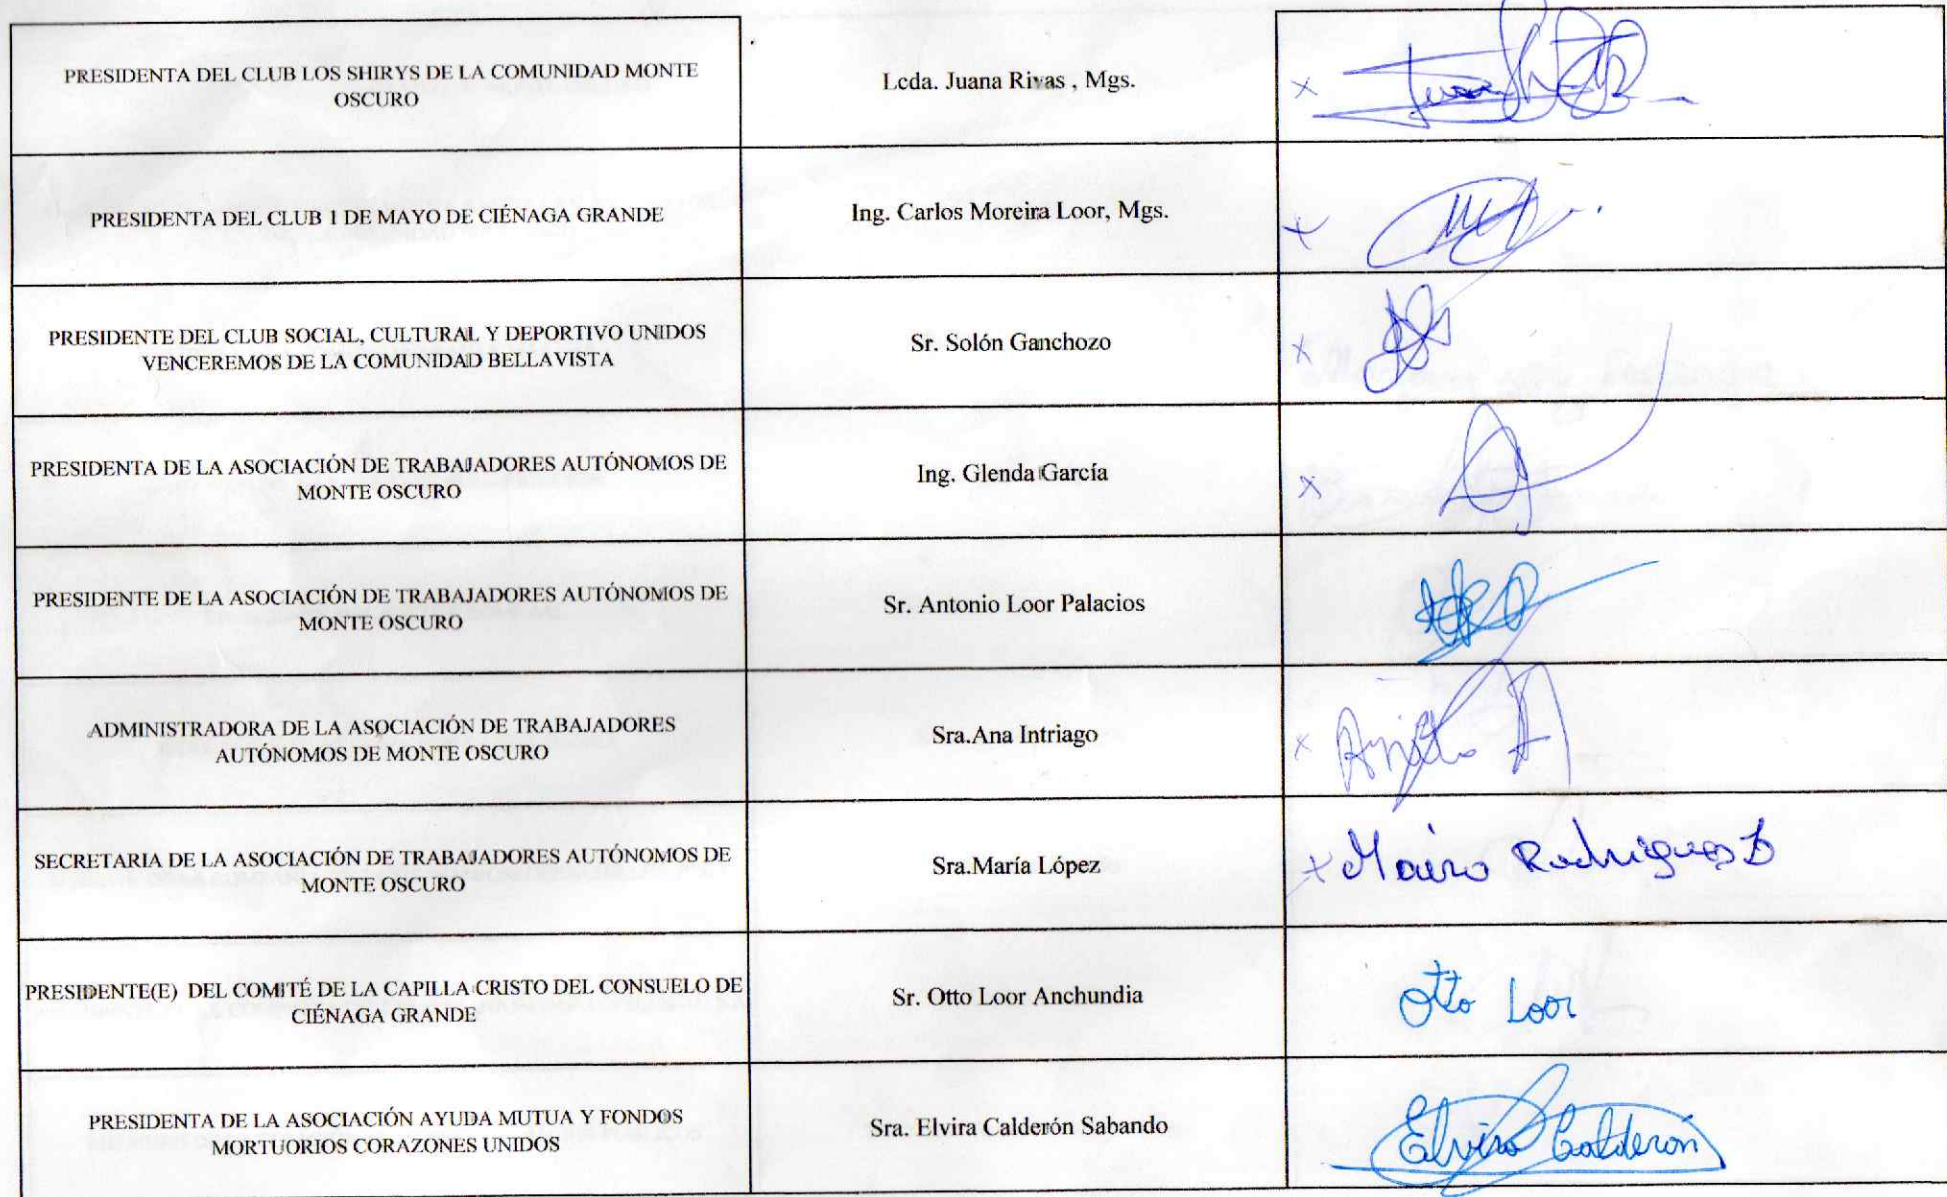 PRESIDENTA DEL CLUB LOS SHIRYS DE LA COMUNIDAD MONTE
OSCURO
Lcda. Juana Rivas , Mgs.
x
PRESIDENTA DEL CLUB 1 DE MAYO DE CIÉNAGA GRANDE
Ing. Carlos Moreira Loor, Mgs.
x
PRESIDENTE DEL CLUB SOCIAL, CULTURAL Y DEPORTIVO UNIDOS
VENCEREMOS DE LA COMUNIDAD BELLAVISTA
Sr. Solón Ganchozo
x
PRESIDENTA DE LA ASOCIACIÓN DE TRABAJADORES AUTÓNOMOS DE
MONTE OSCURO
Ing. Glenda García
x
PRESIDENTE DE LA ASOCIACIÓN DE TRABAJADORES AUTÓNOMOS DE
MONTE OSCURO
Sr. Antonio Loor Palacios
ADMINISTRADORA DE LA ASOCIACIÓN DE TRABAJADORES
AUTÓNOMOS DE MONTE OSCURO
Sra.Ana Intriago
x
SECRETARIA DE LA ASOCIACIÓN DE TRABAJADORES AUTÓNOMOS DE
MONTE OSCURO
Sra.María López
x Rodriguez
PRESIDENTE(E) DEL COMITÉ DE LA CAPILLA CRISTO DEL CONSUELO DE
CIÉNAGA GRANDE
Sr. Otto Loor Anchundia
Otto Loor
PRESIDENTA DE LA ASOCIACIÓN AYUDA MUTUA Y FONDOS
MORTUORIOS CORAZONES UNIDOS
Sra. Elvira Calderón Sabando
Elvira Calderón